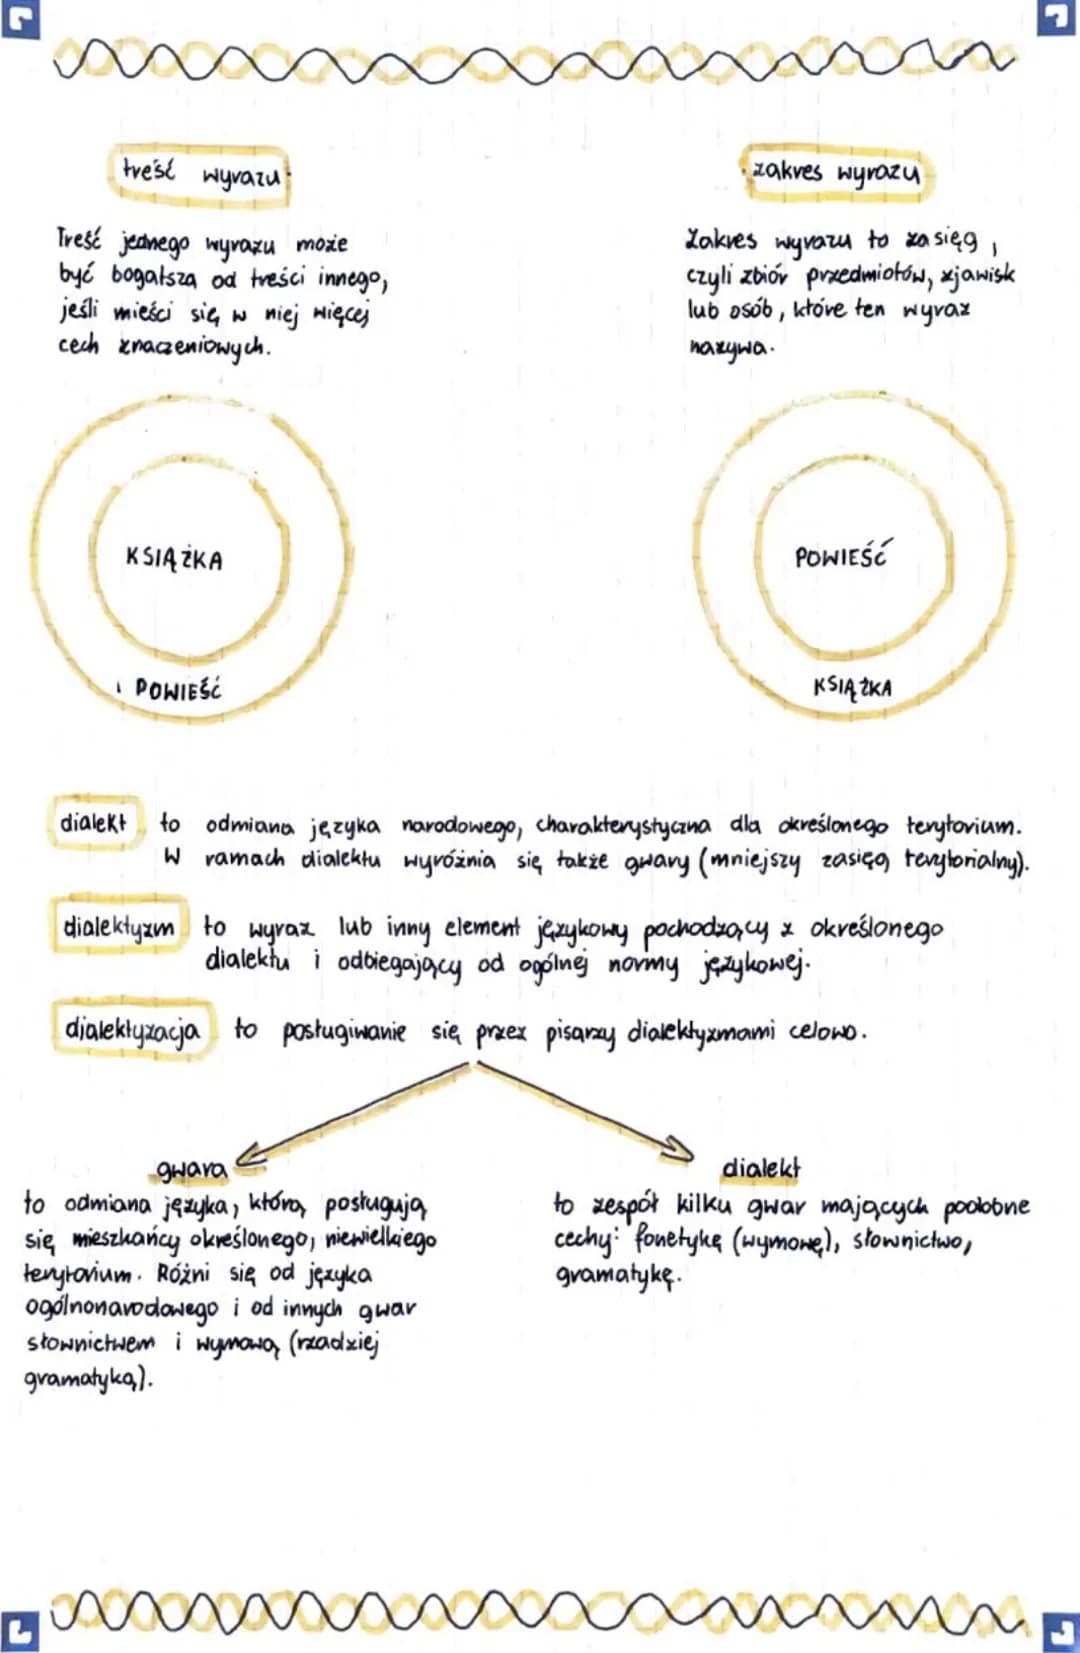 treść wyrazu
Treść jednego wyrazu może
być bogatsza od treści innego,
jeśli mieści się w niej więcej
cech znaczeniowych.
KSIĄŻKA
POWIEŚĆ
zakres wyrazu
Zakres wyrazu to zasięg,
czyli zbiór przedmiotów, zjawisk
lub osób, które ten wyraz
nazywa.
POWIEŚĆ
KSIĄŻKA
dialekt to odmiana języka narodowego, charakterystyczna dla określonego terytorium.
W ramach dialektu wyróżnia się także gwary (mniejszy zasięg terytorialny).
dialektyzm to wyraz lub inny element językowy pochodzący z określonego
dialektu i odbiegający od ogólnej normy językowej.
dialektyzacja to posługiwanie się przez pisarzy dialektyzmami celowo.
gwara
to odmiana języka, którą posługują
się mieszkańcy określonego, niewielkiego
terytorium. Różni się od języka
ogólnonarodowego i od innych gwar
słownictwem i wymową (rzadziej
gramatyką).
dialekt
to zespół kilku gwar mających podobne
cechy: fonetykę (wymowę), słownictwo,
gramatykę.